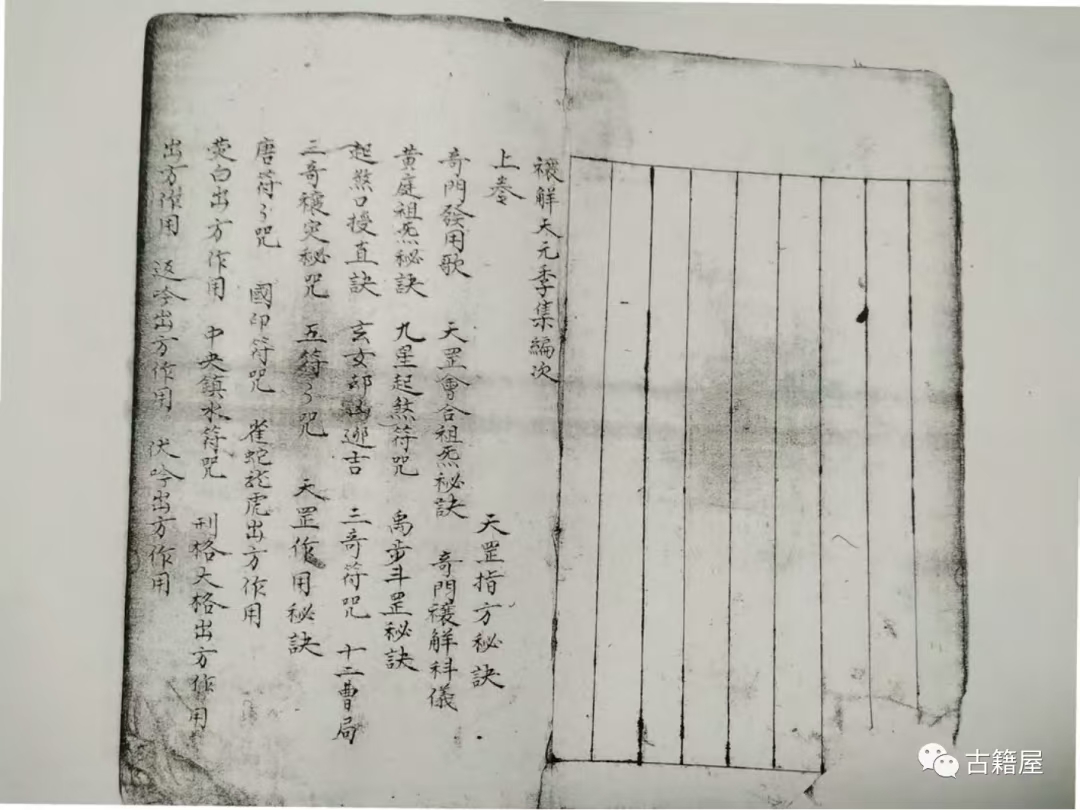 禳解天元季集編次
上卷 天罡指方秘訣
奇門發用歌 天罡會合祖炁秘訣 奇門禳解科儀
黃庭祖炁秘訣 九星起煞符咒 禹步斗罡秘訣
起煞口授直訣 玄女却凶迎吉 三奇符咒 十二曹局
三奇禳灾秘咒 五符々咒 天罡作用秘訣
唐符々咒 國印符咒 雀蛇龙虎出方作用
熒白出方作用 中央鎮水符咒 刑格大格出方作用
出方作用 返吟出方作用 伏吟出方作用
古籍屋